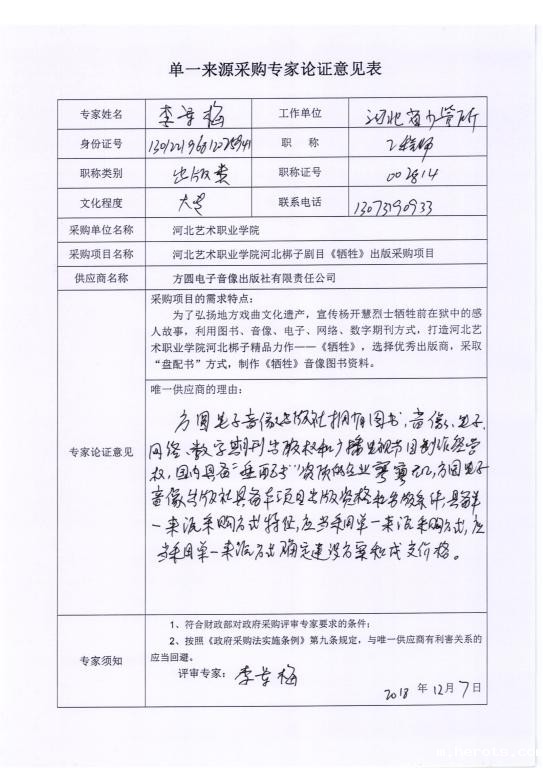 单一来源采购专家论证意见表
专家姓名 李 梅 工作单位 河北省
身份证号 职 称 工程师
职称类别 出版类 职称证号 002814
文化程度 大专 联系电话 13073190933
采购单位名称 河北艺术职业学院
采购项目名称 河北艺术职业学院河北梆子剧目《牺牲》出版采购项目
供应商名称 方圆电子音像出版社有限责任公司
专家论证意见
采购项目的需求特点：
为了弘扬地方戏曲文化遗产，宣传杨开慧烈士牺牲前在狱中的感
人故事，利用图书、音像、电子、网络、数字期刊方式，打造河北艺
术职业学院河北梆子精品力作——《牺牲》，选择优秀出版商，采取
“盘配书”方式，制作《牺牲》音像图书资料。
唯一供应商的理由：
方圆电子音像出版社拥有图书、音像、电子、
网络、数字期刊出版权和广播电视节目制作经营
权，国内具备“盘配书”资质的企业寥寥无几，方圆电子
音像出版社具备本项目出版资格和出版条件，具备单
一来源采购方式特征，应当采用单一来源采购方式，应
当采用单一来源方式确定建设方案和成交价格。
专家须知
1、符合财政部对政府采购评审专家要求的条件；
2、按照《政府采购法实施条例》第九条规定，与唯一供应商有利害关系的
应当回避。
评审专家： 李 梅
2018 年 12 月 7 日